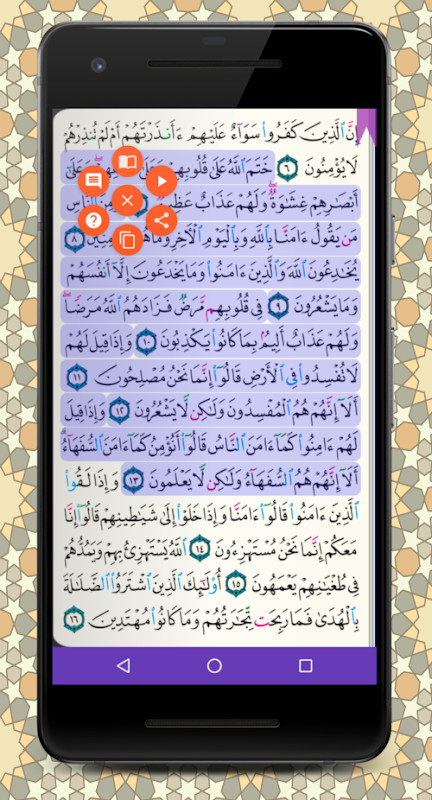 إِنَّ الَّذِينَ كَفَرُوا سَوَآءٌ عَلَيْهِمْ ءَأَنذَرْتَهُمْ أَمْ لَمْ تُنذِرْهُمْ
لَا يُؤْمِنُونَ ٦ خَتَمَ اللَّهُ عَلَىٰ قُلُوبِهِمْ وَعَلَىٰ وَعَلَىٰٓ
أَبْصَٰرِهِمْ غِشَٰوَةٌ وَلَهُمْ عَذَابٌ عَظِيمٌ النَّاسِ
مَن يَقُولُ ءَامَنَّا بِاللَّهِ وَبِالْيَوْمِ الْأَخِرِ وَمَا هُم ٨
يُخَٰدِعُونَ اللَّهَ وَالَّذِينَ ءَامَنُوا وَمَا يَخْدَعُونَ إِلَّآ أَنفُسَهُمْ
وَمَا يَشْعُرُونَ ٩ فِي قُلُوبِهِم مَّرَضٌ فَزَادَهُمُ اللَّهُ مَرَضًا
وَلَهُمْ عَذَابٌ أَلِيمٌ بِمَا كَانُوا يَكْذِبُونَ ١٠ وَإِذَا قِيلَ لَهُمْ
لَا تُفْسِدُوا فِي الْأَرْضِ قَالُوٓا إِنَّمَا نَحْنُ مُصْلِحُونَ ١١
أَلَآ إِنَّهُمْ هُمُ الْمُفْسِدُونَ وَلَٰكِن لَّا يَشْعُرُونَ ١٢ وَإِذَا قِيلَ
لَهُمْ ءَامِنُوا كَمَآ ءَامَنَ النَّاسُ قَالُوٓا أَنُؤْمِنُ كَمَآ ءَامَنَ السُّفَهَآءُ
أَلَآ إِنَّهُمْ هُمُ السُّفَهَآءُ وَلَٰكِن لَّا يَعْلَمُونَ ١٣ وَإِذَا لَقُوا
الَّذِينَ ءَامَنُوا قَالُوٓا ءَامَنَّا وَإِذَا خَلَوْا إِلَىٰ شَيَٰطِينِهِمْ قَالُوٓا إِنَّا
مَعَكُمْ إِنَّمَا نَحْنُ مُسْتَهْزِءُونَ ١٤ اللَّهُ يَسْتَهْزِئُ بِهِمْ وَيَمُدُّهُمْ
فِي طُغْيَٰنِهِمْ يَعْمَهُونَ ١٥ أُولَٰٓئِكَ الَّذِينَ اشْتَرَوُا الضَّلَٰلَةَ
بِالْهُدَىٰ فَمَا رَبِحَت تِّجَٰرَتُهُمْ وَمَا كَانُوا مُهْتَدِينَ ١٦